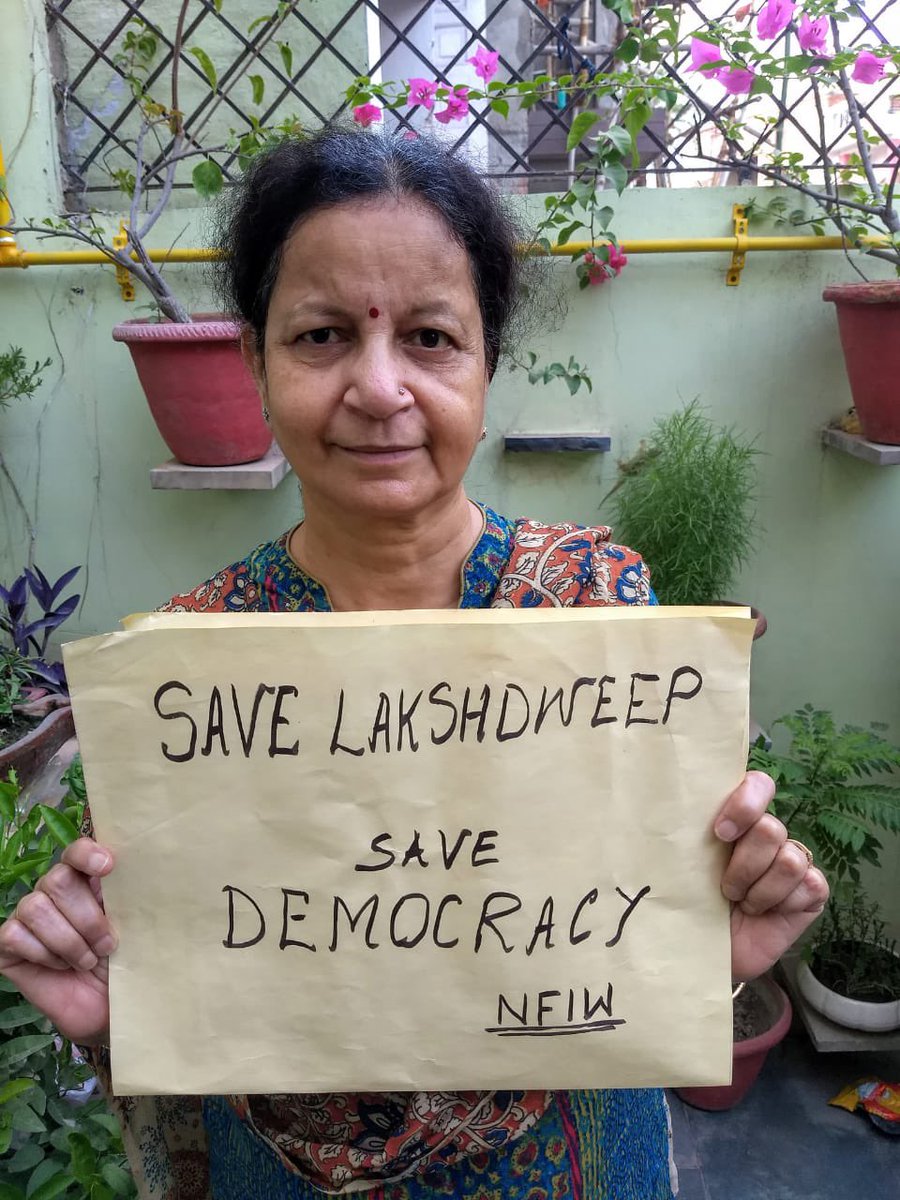 SAVE LAKSHDWEEP
SAVE
DEMOCRACY
NFIW